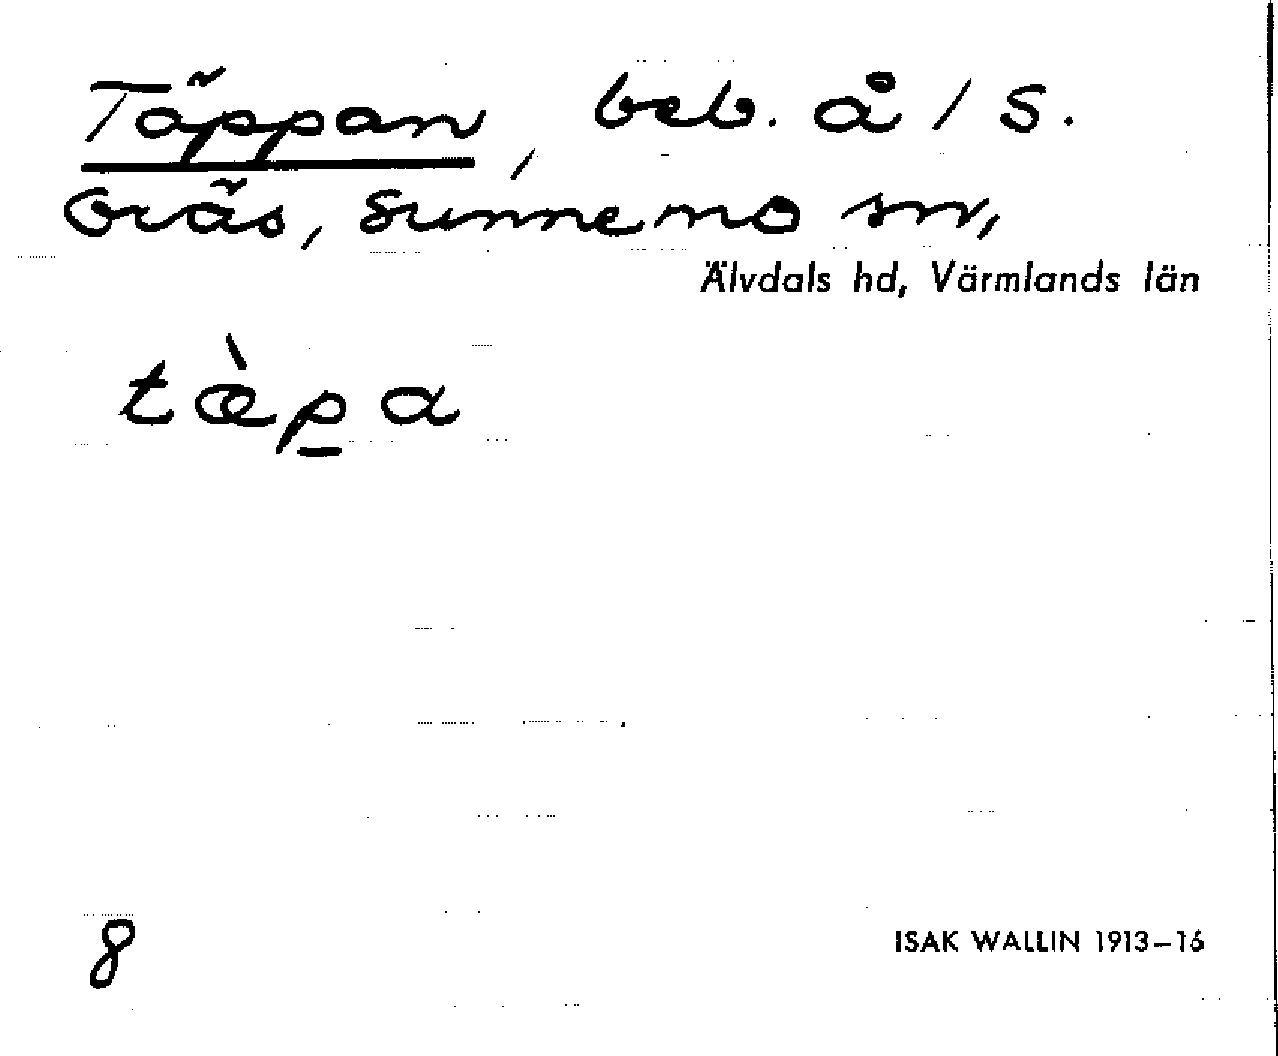 Täppan, beb. å 1 S.
Gräs, Sunnemo sn,
Älvdals hd, Värmlands län
tæ̀p̲a
8
ISAK WALLIN 1913–16